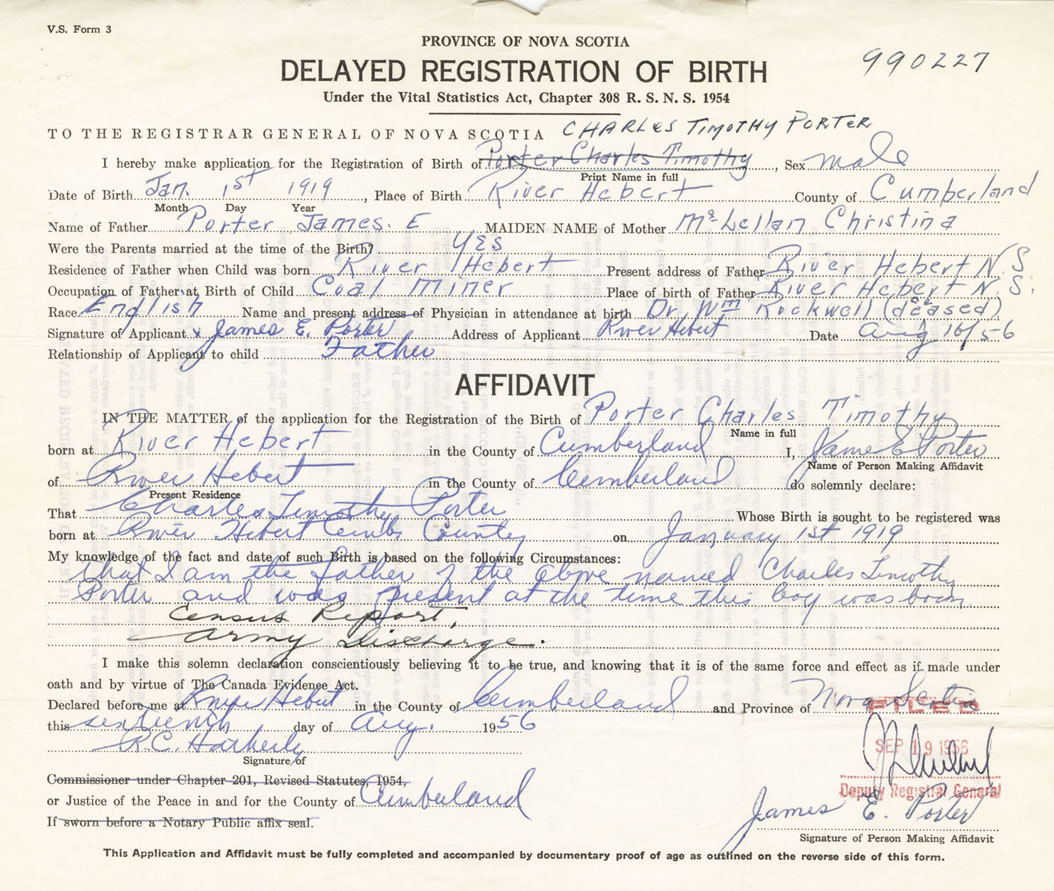 V.S. Form 3
PROVINCE OF NOVA SCOTIA
990227
DELAYED REGISTRATION OF BIRTH
Under the Vital Statistics Act, Chapter 308 R. S. N. S. 1954
TO THE REGISTRAR GENERAL OF NOVA SCOTIA CHARLES TIMOTHY PORTER
I hereby make application for the Registration of Birth of Porter Charles Timothy, Sex male
Print Name in full
Date of Birth Jan. 1st 1919, Place of Birth River Hebert County of Cumberland
Month Day Year
Name of Father Porter James. E MAIDEN NAME of Mother McLellan Christina
Were the Parents married at the time of the Birth? YES
Residence of Father when Child was born River Hebert Present address of Father River Hebert N.S.
Occupation of Father at Birth of Child Coal Miner Place of birth of Father River Hebert N.S.
Race English Name and present address of Physician in attendance at birth Dr. Wm Rockwell (deased)
Signature of Applicant x James E. Porter Address of Applicant River Hebert Date Aug 16/56
Relationship of Applicant to child Father
AFFIDAVIT
IN THE MATTER of the application for the Registration of the Birth of Porter Charles Timothy
Name in full
born at River Hebert in the County of Cumberland I, James E Porter
Name of Person Making Affidavit
of River Hebert in the County of Cumberland do solemnly declare:
Present Residence
That Charles Timothy Porter Whose Birth is sought to be registered was
born at River Hebert Cumb County on January 1st 1919
My knowledge of the fact and date of such Birth is based on the following Circumstances:
that I am the father of the above named Charles Timothy
Porter and was present at the time this boy was born
Census Report,
Army Discharge.
I make this solemn declaration conscientiously believing it to be true, and knowing that it is of the same force and effect as if made under
oath and by virtue of The Canada Evidence Act.
Declared before me at River Hebert in the County of Cumberland and Province of Nova Scotia
FILED
this sixteenth day of Aug. 1956
SEP 19 1956
R.C. Hatherly
Signature of
Commissioner under Chapter 201, Revised Statutes, 1954,
Deputy Registrar General
or Justice of the Peace in and for the County of Cumberland
James E. Porter
If sworn before a Notary Public affix seal.
Signature of Person Making Affidavit
This Application and Affidavit must be fully completed and accompanied by documentary proof of age as outlined on the reverse side of this form.